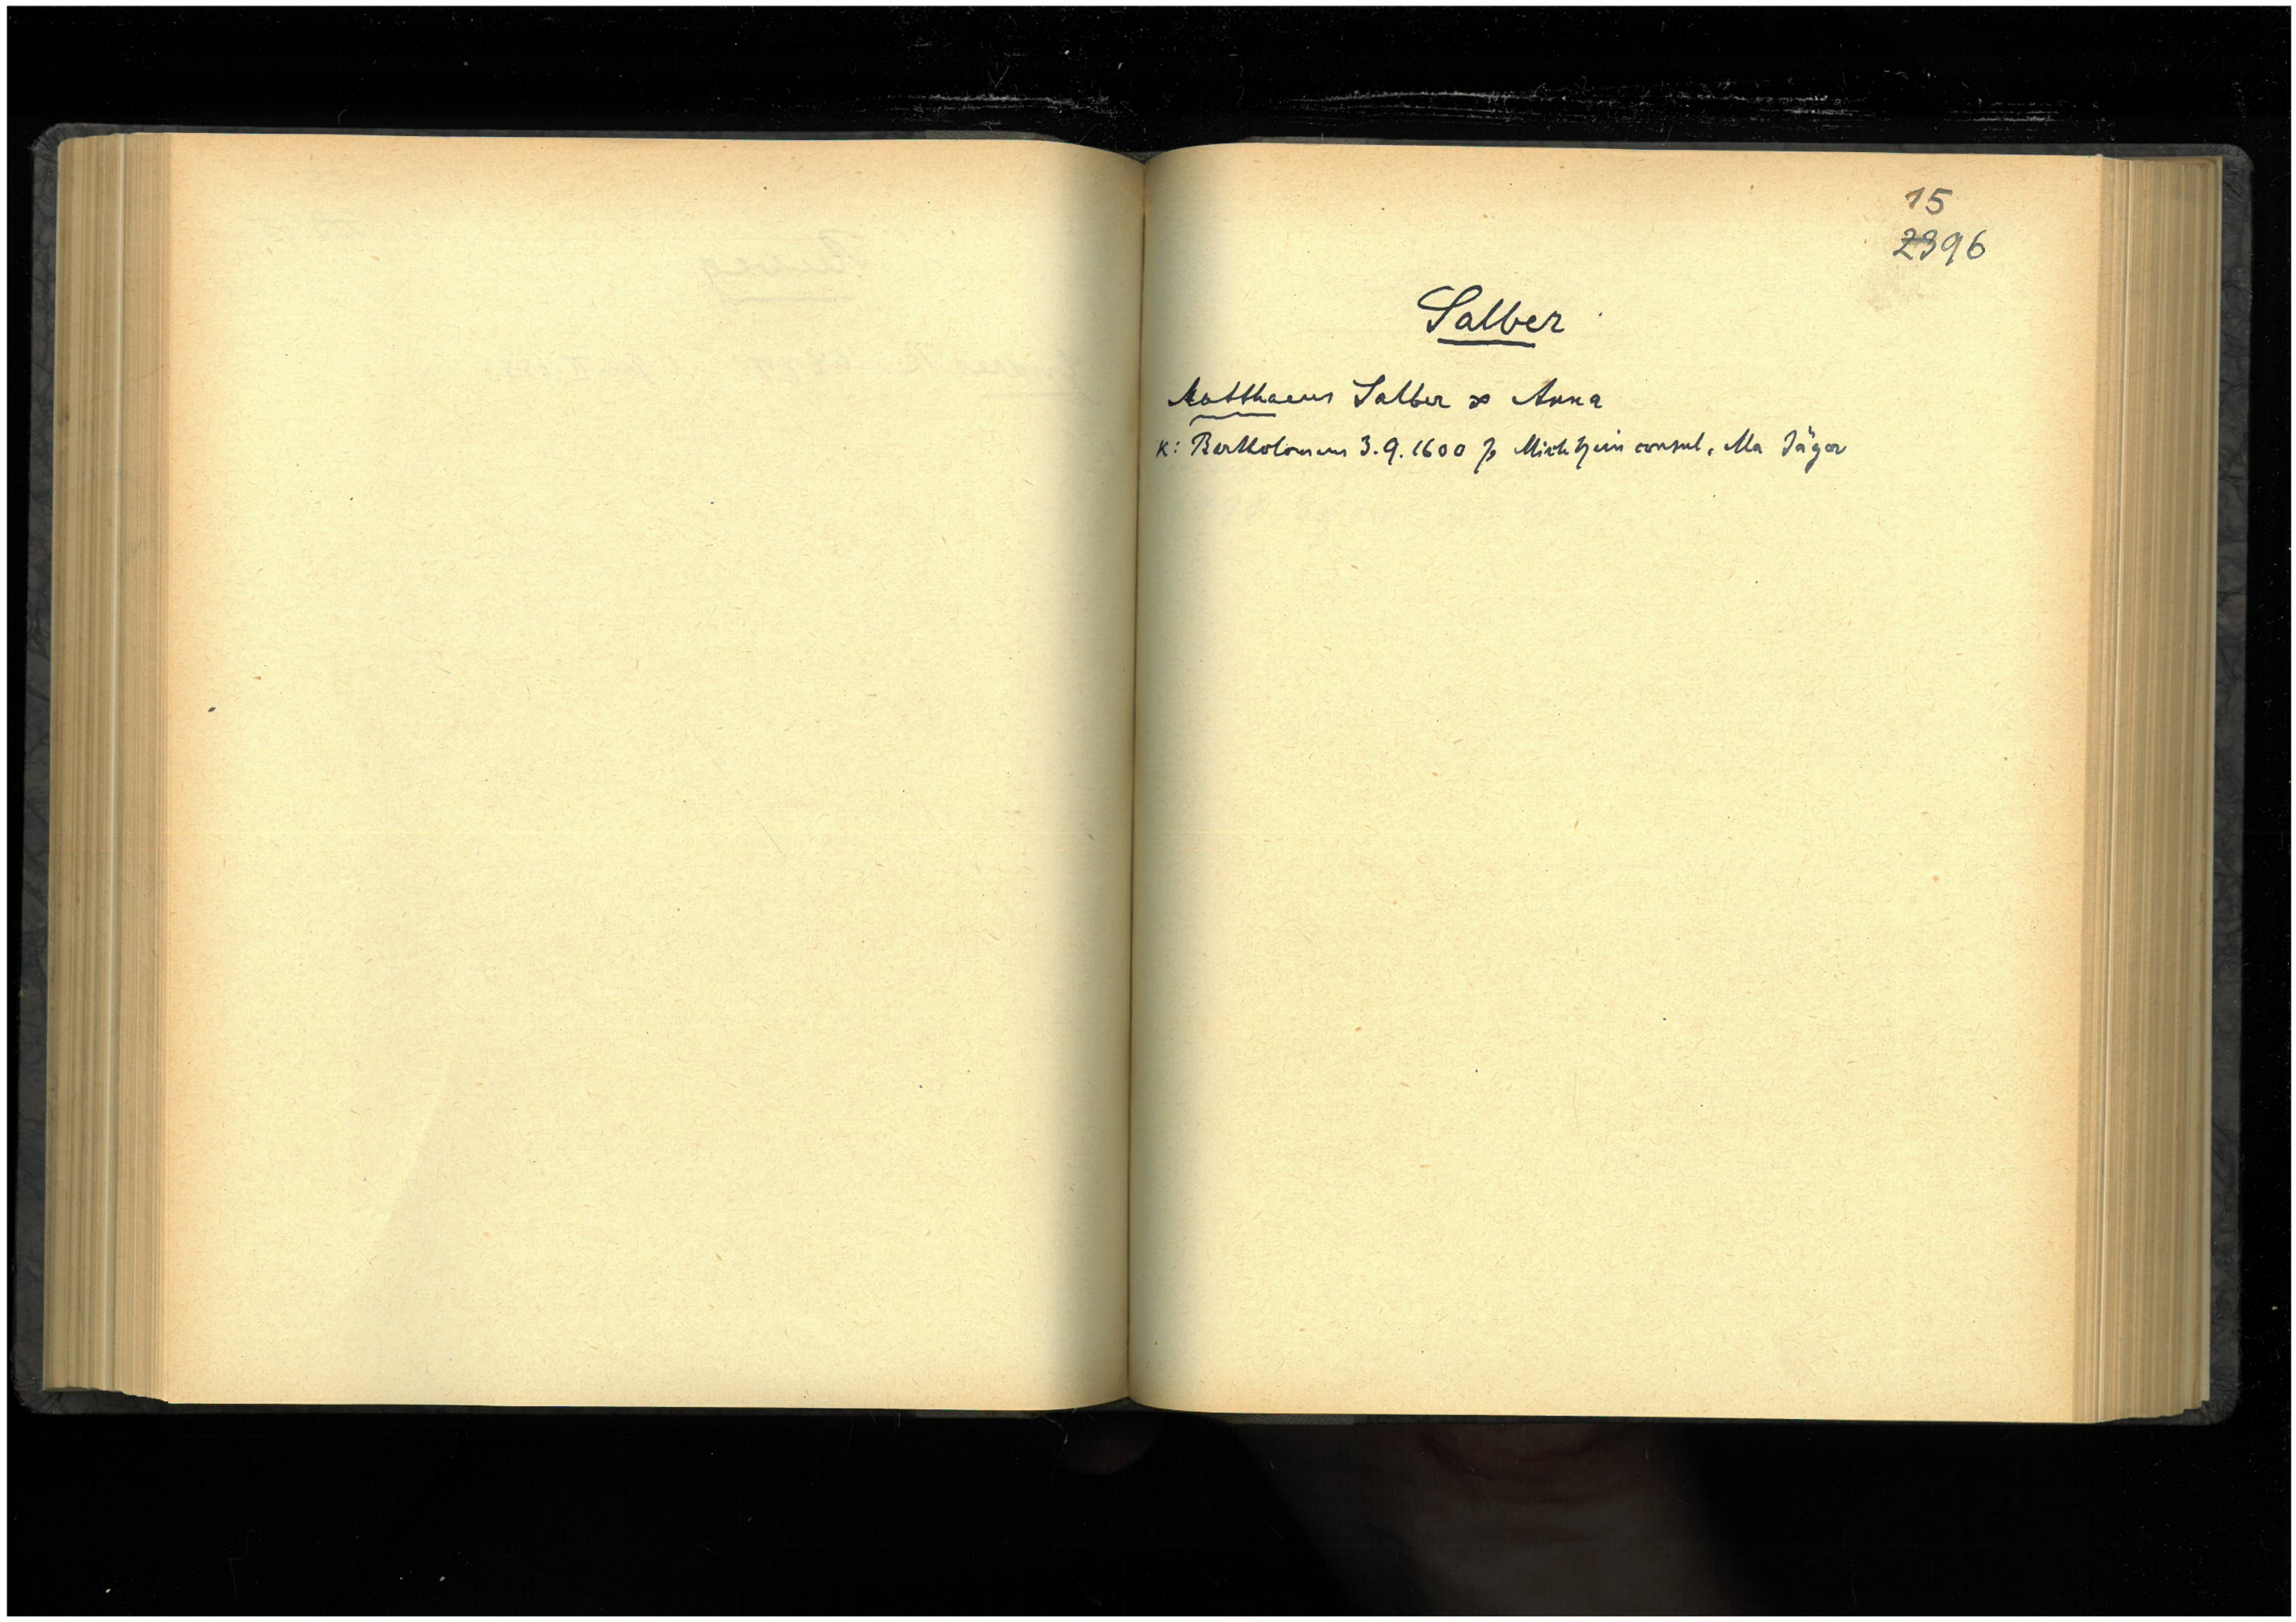 15
2396
Salber
Matthaeus Salber ∞ Anna
K: Bartholomeus 3.9.1600 p Mich consul, Ma Jäger